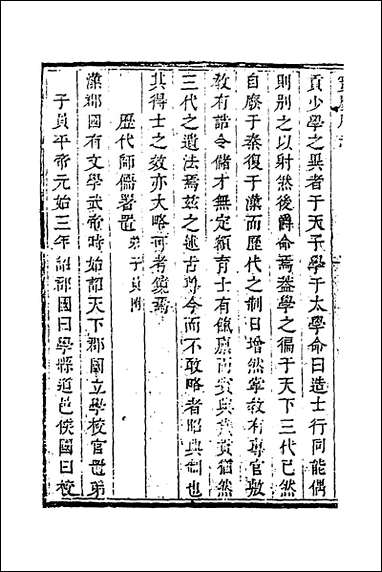 貢少學之異者于天子學于太學命曰造士行同能偶
則别之以射然後爵命焉葢學之徧于天下三代已然
自廢于秦復于漢而歷代之制日增然宰敎有專官敷
敎有誥令儲才無定額育士有餼廩而賓興貢猶然
三代之遺法焉茲之述古尊今而不敢略者昭典制也
其得士之效亦大略可考集焉
歷代師儒署置弟子員附
漢郡國有文學武帝時始詔天下郡國立學校官置弟
子員平帝元始三年詔郡國曰學縣道邑侯國曰校